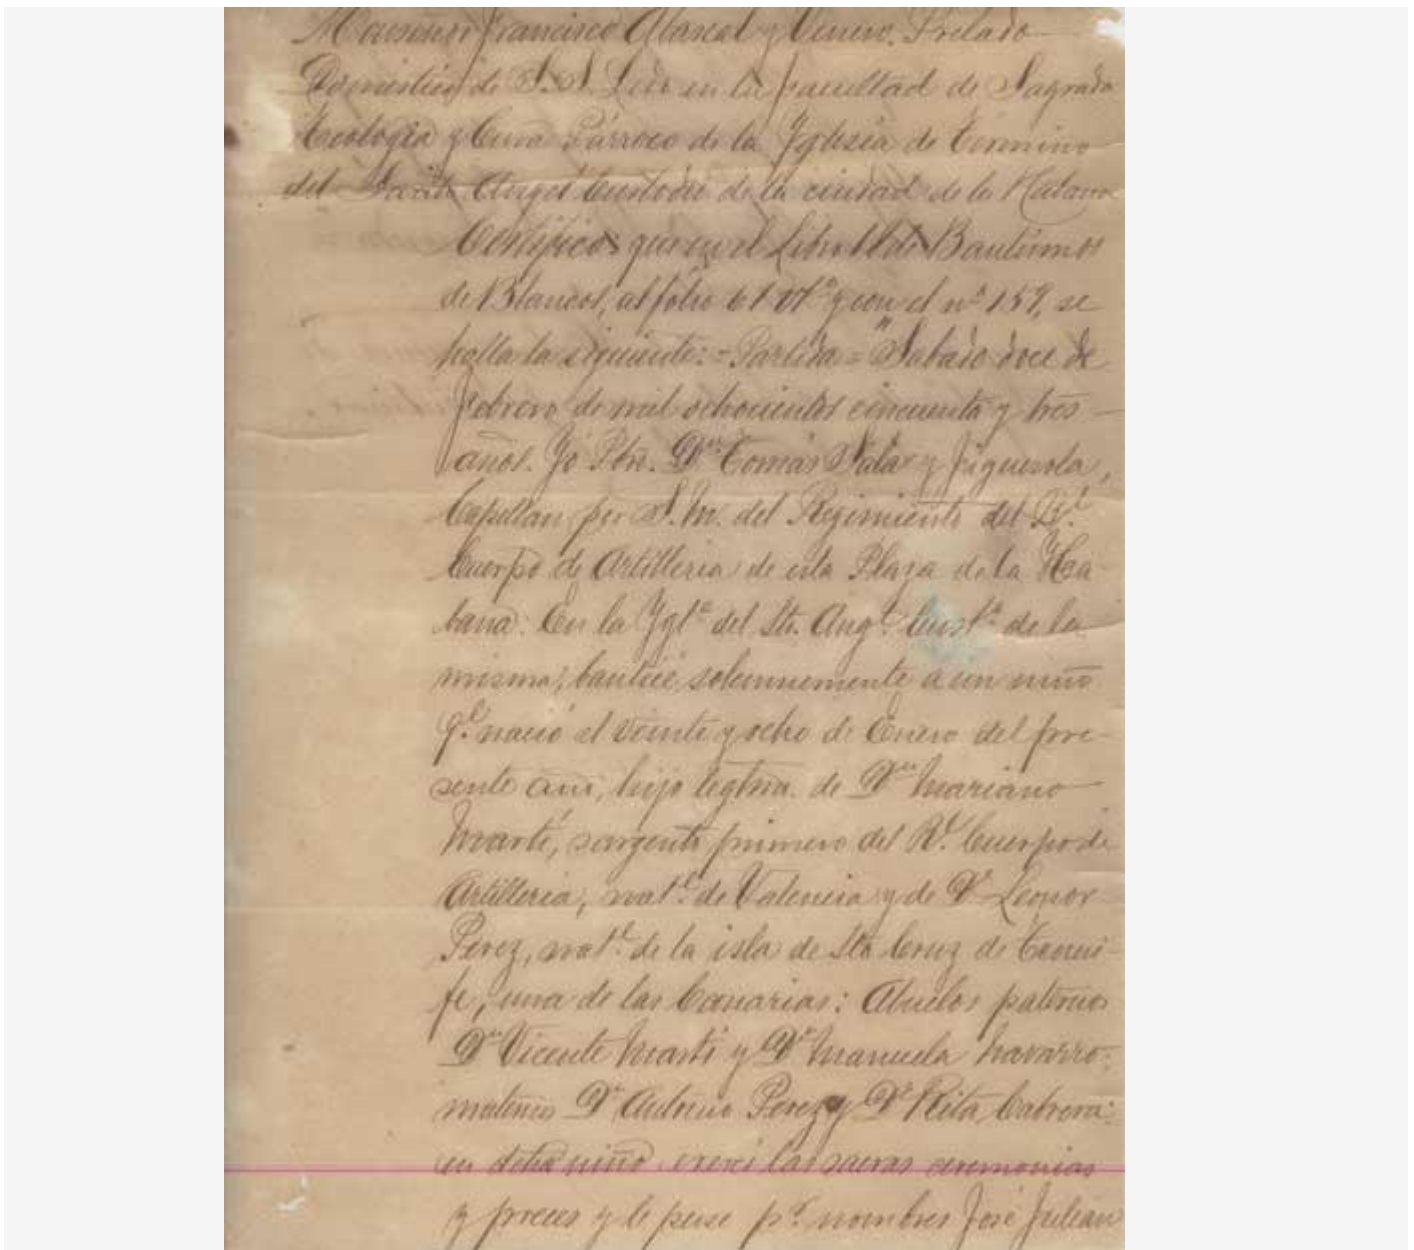 Monseñor Francisco Abascal y Venero. Prelado
Doméstico de S. S. Ldo en la facultad de Sagrada
Teología y Cura Párroco de la Yglesia de Término
del Santo Angel Custodio de la ciudad de la Habana
Certifico: que en el Libro de Bautismos
de Blancos, al fólio 61 vtº y con el nº 159, se
halla la siguiente: = Partida = "Sabado doce de
Febrero de mil ochocientos cincuenta y tres
años. Yo Pbro. Dn Tomás Sala y Figuerola,
Capellan por S. M. del Regimiento del Rl.
Cuerpo de Artilleria de esta Plaza de la Ha-
bana. En la Yglª del Sto. Angl. Custº de la
misma, bauticé solemnemente a un niño
ql. nació el veinte y ocho de Enero del pre-
sente año, hijo legtmo. de Dn Mariano
Martí, sargento primero del Rl. Cuerpo de
Artilleria, natl. de Valencia y de Dª Leonor
Perez, natl. de la isla de Sta Cruz de Teneri-
fe, una de las Canarias: Abuelos paternos
Dn Vicente Martí y Dª Manuela Navarro:
maternos Dn Antonio Perez y Dª Rita Cabrera:
en dcho niño ejercí las sacras ceremonias
y preces y le puse pr. nombres José Julian